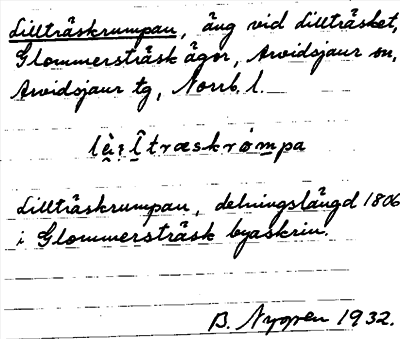 Lillträskrumpan, äng vid Lillträsket,
Glommersträsk ägor, Arvidsjaur sn,
Arvidsjaur tg, Norrb. l.
Lillträskrumpan, delningslängd 1806
i Glommersträsk byaskrin.
B. Nygren 1932.